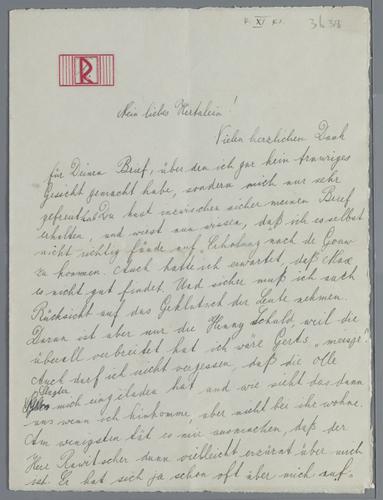 R
XI
Mein liebes Hertalein!
Vielen herzlichen Dank
für Deinen Brief, über den ich gar kein trauriges
Gesicht gemacht habe, sondern mich nur sehr
gefreut hab. Du hast inzwischen sicher meinen Brief
erhalten, und weist nun wissen, daß ich es selbst
nicht richtig fände auf Erholung nach de Gouw
zu kommen. Auch hatte ich erwartet, daß Max
es nicht gut findet. Und sicher muß ich auch
Rücksicht auf das Geklatsch der Leute nehmen.
Daran ist aber nur die Henny Schuld, weil die
überall verbreitet hat ich wäre Gerds „meisje".
Auch darf ich nicht vergessen, daß die Olle
mich eingeladen hat und wie sieht das dann
aus wenn ich hinkomme, aber nicht bei ihr wohne.
Am wenigsten tät es mir ausmachen, daß der
Herr Rawitscher dann vielleicht erzürnt über mich
ist. Er hat sich ja schon oft über mich auf-